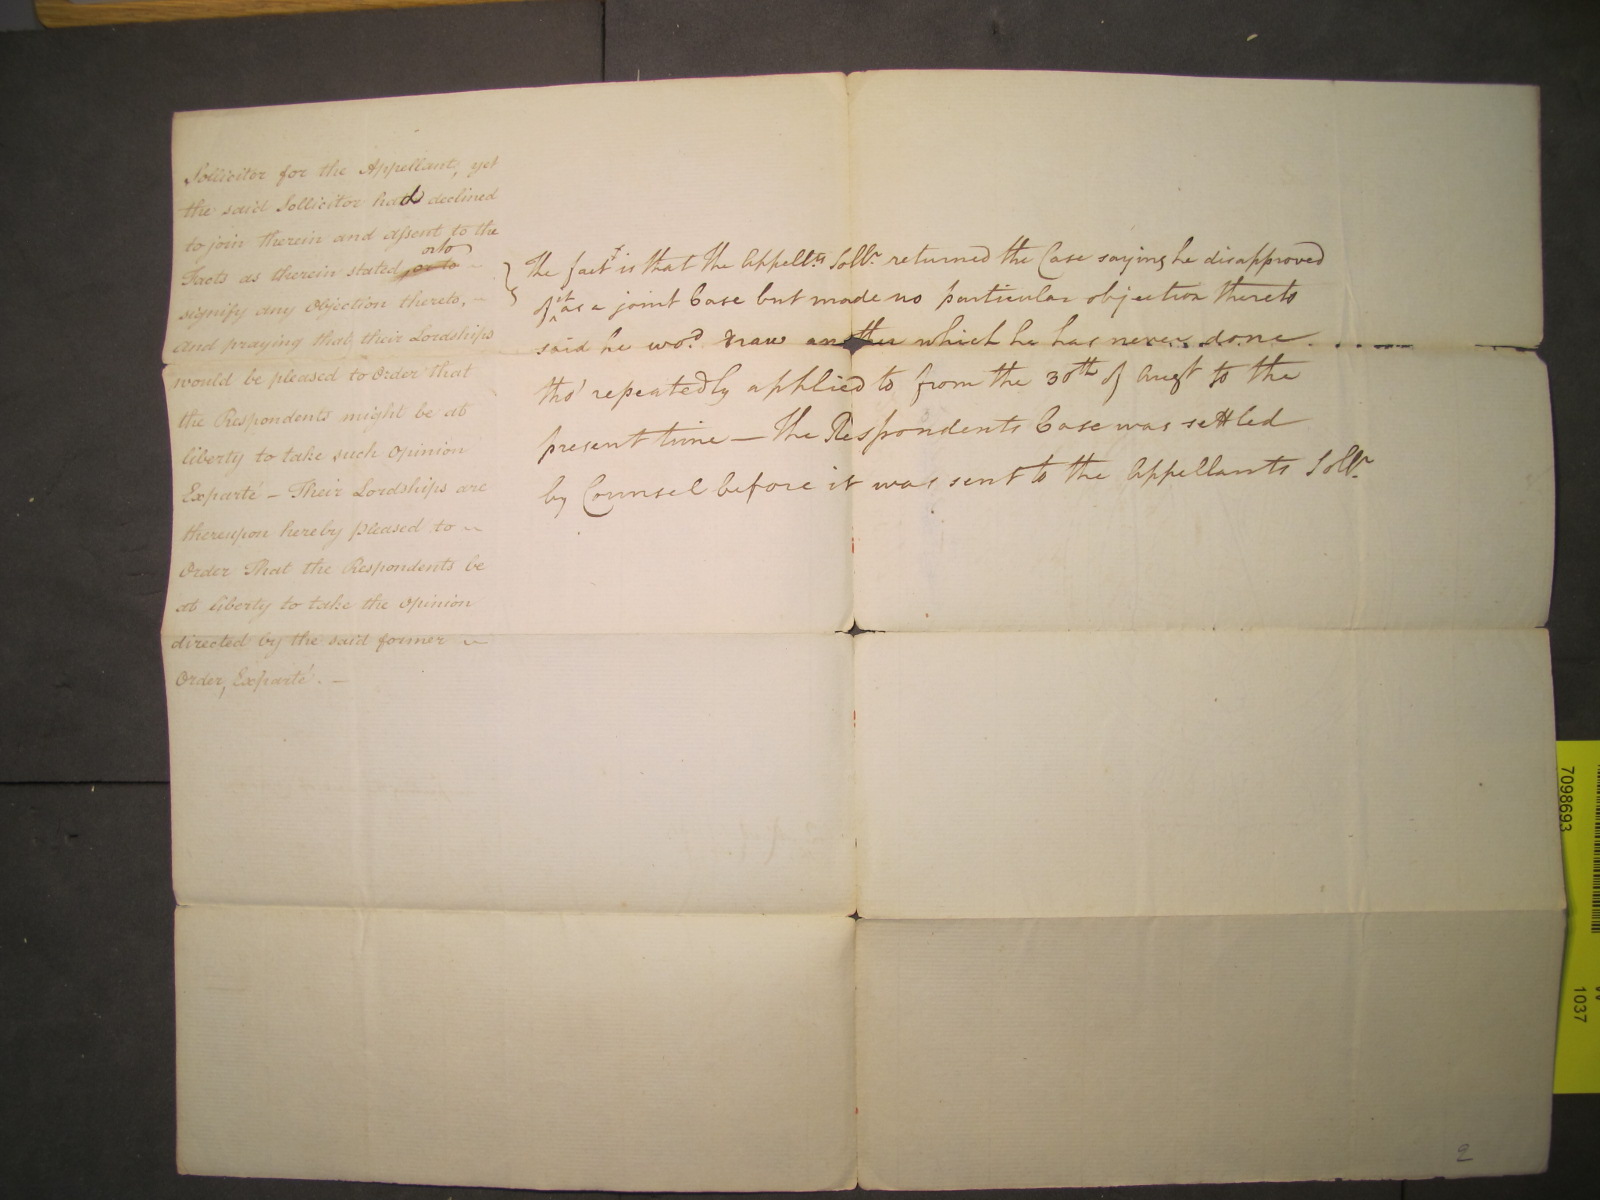 Sollicitor for the Appellant, yet
the said Sollicitor had declined
to join therein and assent to the
or to
Facts as therein stated, or to
signify any Objection thereto, –
and praying that their Lordships
would be pleased to Order that
the Respondents might be at
liberty to take such Opinion
Exparté – Their Lordships are
thereupon hereby pleased to ~
Order That the Respondents be
at liberty to take the Opinion
directed by the said former ~
Order, Exparté. –
The fact is that the Appellts Sollr returned the Case saying he disapproved
of it as a joint Case but made no particular objection thereto
said he wod draw another which he has never done
tho' repeatedly applied to from the 30th of Augt to the
present time – The Respondents Case was settled
by Counsel before it was sent to the Appellants Sollr
2
7098693
1037